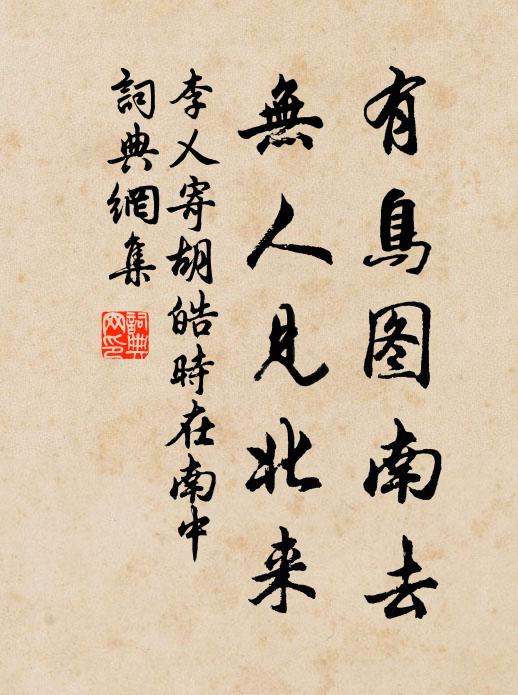 有鳥图南去
無人見北来
李乂寄胡皓時在南中
詞典網集
詞典
网印